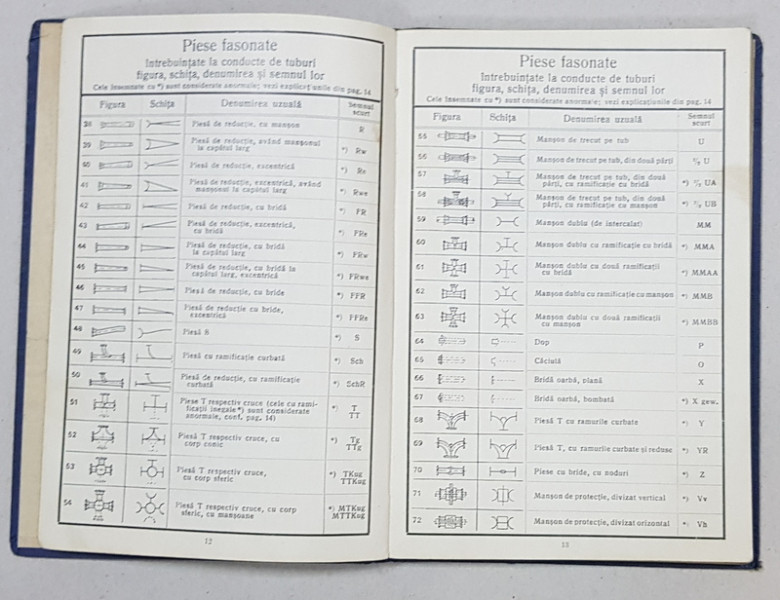 Piese fasonate
întrebuințate la conducte de tuburi
figura, schița, denumirea și semnul lor
Cele însemnate cu *) sunt considerate anormale; vezi explicațiunile din pag. 14
Figura Schița Denumirea uzuală Semnul scurt
38 Piesă de reducție, cu manșon R
39 Piesă de reducție, având manșonul
la capătul larg *) Rw
40 Piesă de reducție, excentrică *) Re
41 Piesă de reducție, excentrică, având
manșonul la capătul larg *) Rwe
42 Piesă de reducție, cu bridă *) FR
43 Piesă de reducție, excentrică,
cu bridă *) FRe
44 Piesă de reducție, cu bridă
la capătul larg *) FRw
45 Piesă de reducție, cu bridă la
capătul larg, excentrică *) FRwe
46 Piesă de reducție, cu bride *) FFR
47 Piesă de reducție cu bride,
excentrică *) FFRe
48 Piesă S *) S
49 Piesă cu ramificație curbată *) Sch
50 Piesă de reducție, cu ramificație
curbată *) SchR
51 Piese T respectiv cruce (cele cu rami-
ficații inegale *) sunt considerate
anormale, conf. pag. 14) *) T
TT
52 Piesă T respectiv cruce, cu
corp conic *) Tg
TTg
53 Piesă T respectiv cruce,
cu corp sferic *) TKug
TTKug
54 Piesă T respectiv cruce, cu corp
sferic, cu manșoane *) MTKug
MTTKug
12
Piese fasonate
întrebuințate la conducte de tuburi
figura, schița, denumirea și semnul lor
Cele însemnate cu *) sunt considerate anormale; vezi explicațiunile din pag. 14
Figura Schița Denumirea uzuală Semnul scurt
55 Manșon de trecut pe tub U
56 Manșon de trecut pe tub, din două părți U
57 Manșon de trecut pe tub, din două
părți, cu ramificație cu bridă *) UA
58 Manșon de trecut pe tub, din două
părți, cu ramificație cu manșon *) UB
59 Manșon dublu (de intercalat) MM
60 Manșon dublu cu ramificație cu bridă *) MMA
61 Manșon dublu cu două ramificații
cu bridă *) MMAA
62 Manșon dublu cu ramificație cu manșon *) MMB
63 Manșon dublu cu două ramificații
cu manșon *) MMBB
64 Dop P
65 Căciulă O
66 Bridă oarbă, plană X
67 Bridă oarbă, bombată *) X gew.
68 Piesă T cu ramurile curbate *) Y
69 Piesă T, cu ramurile curbate și reduse *) YR
70 Piese cu bride, cu noduri *) Z
71 Manșon de protecție, divizat vertical *) Vv
72 Manșon de protecție, divizat orizontal *) Vh
13